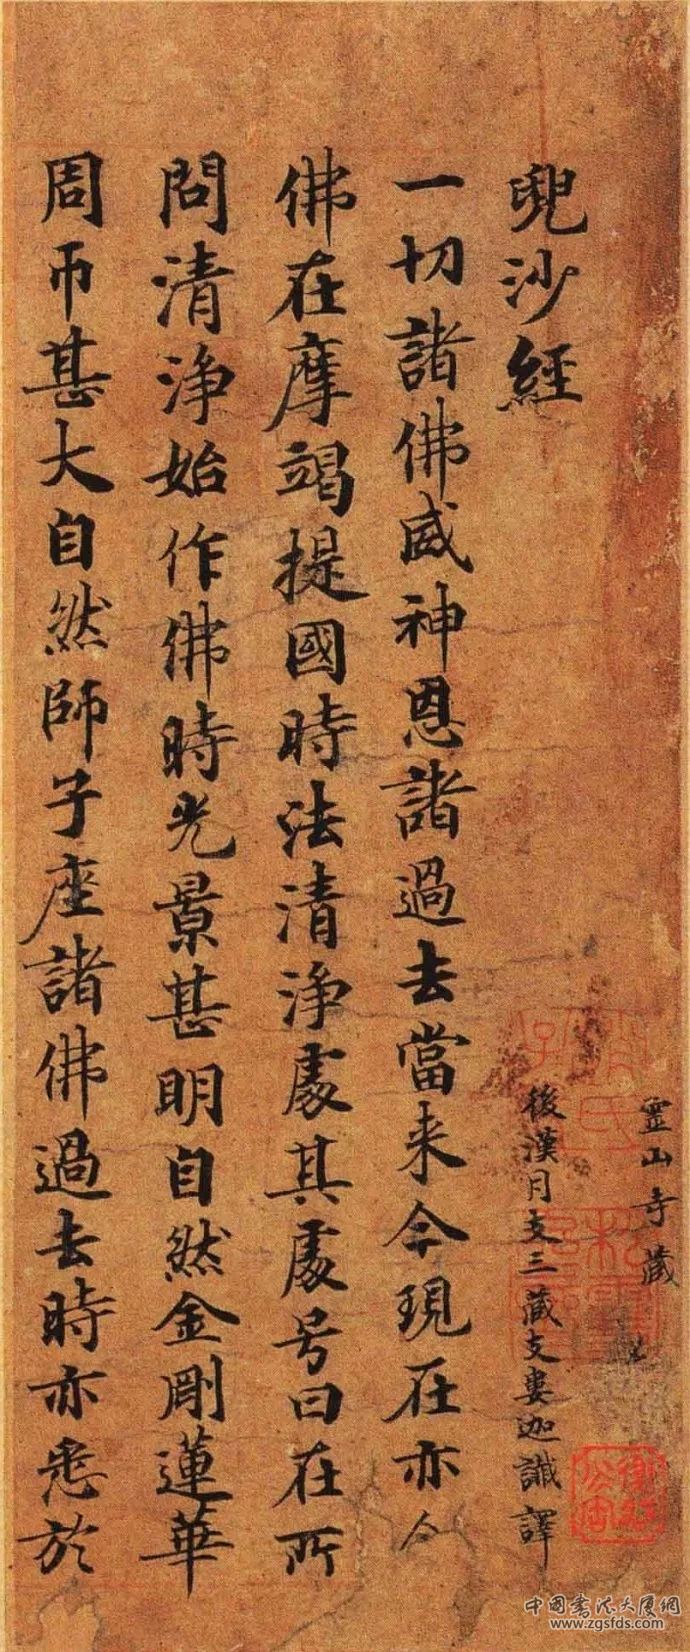 靈山寺藏
兜沙經
後漢月支三藏支婁迦讖譯
一切諸佛威神恩諸過去當来今現在亦今
佛在摩竭提國時法清淨處其處号曰在所
問清淨始作佛時光景甚明自然金剛蓮華
周帀甚大自然師子座諸佛過去時亦悉於
中國書法大厦網
www.zgsfds.com